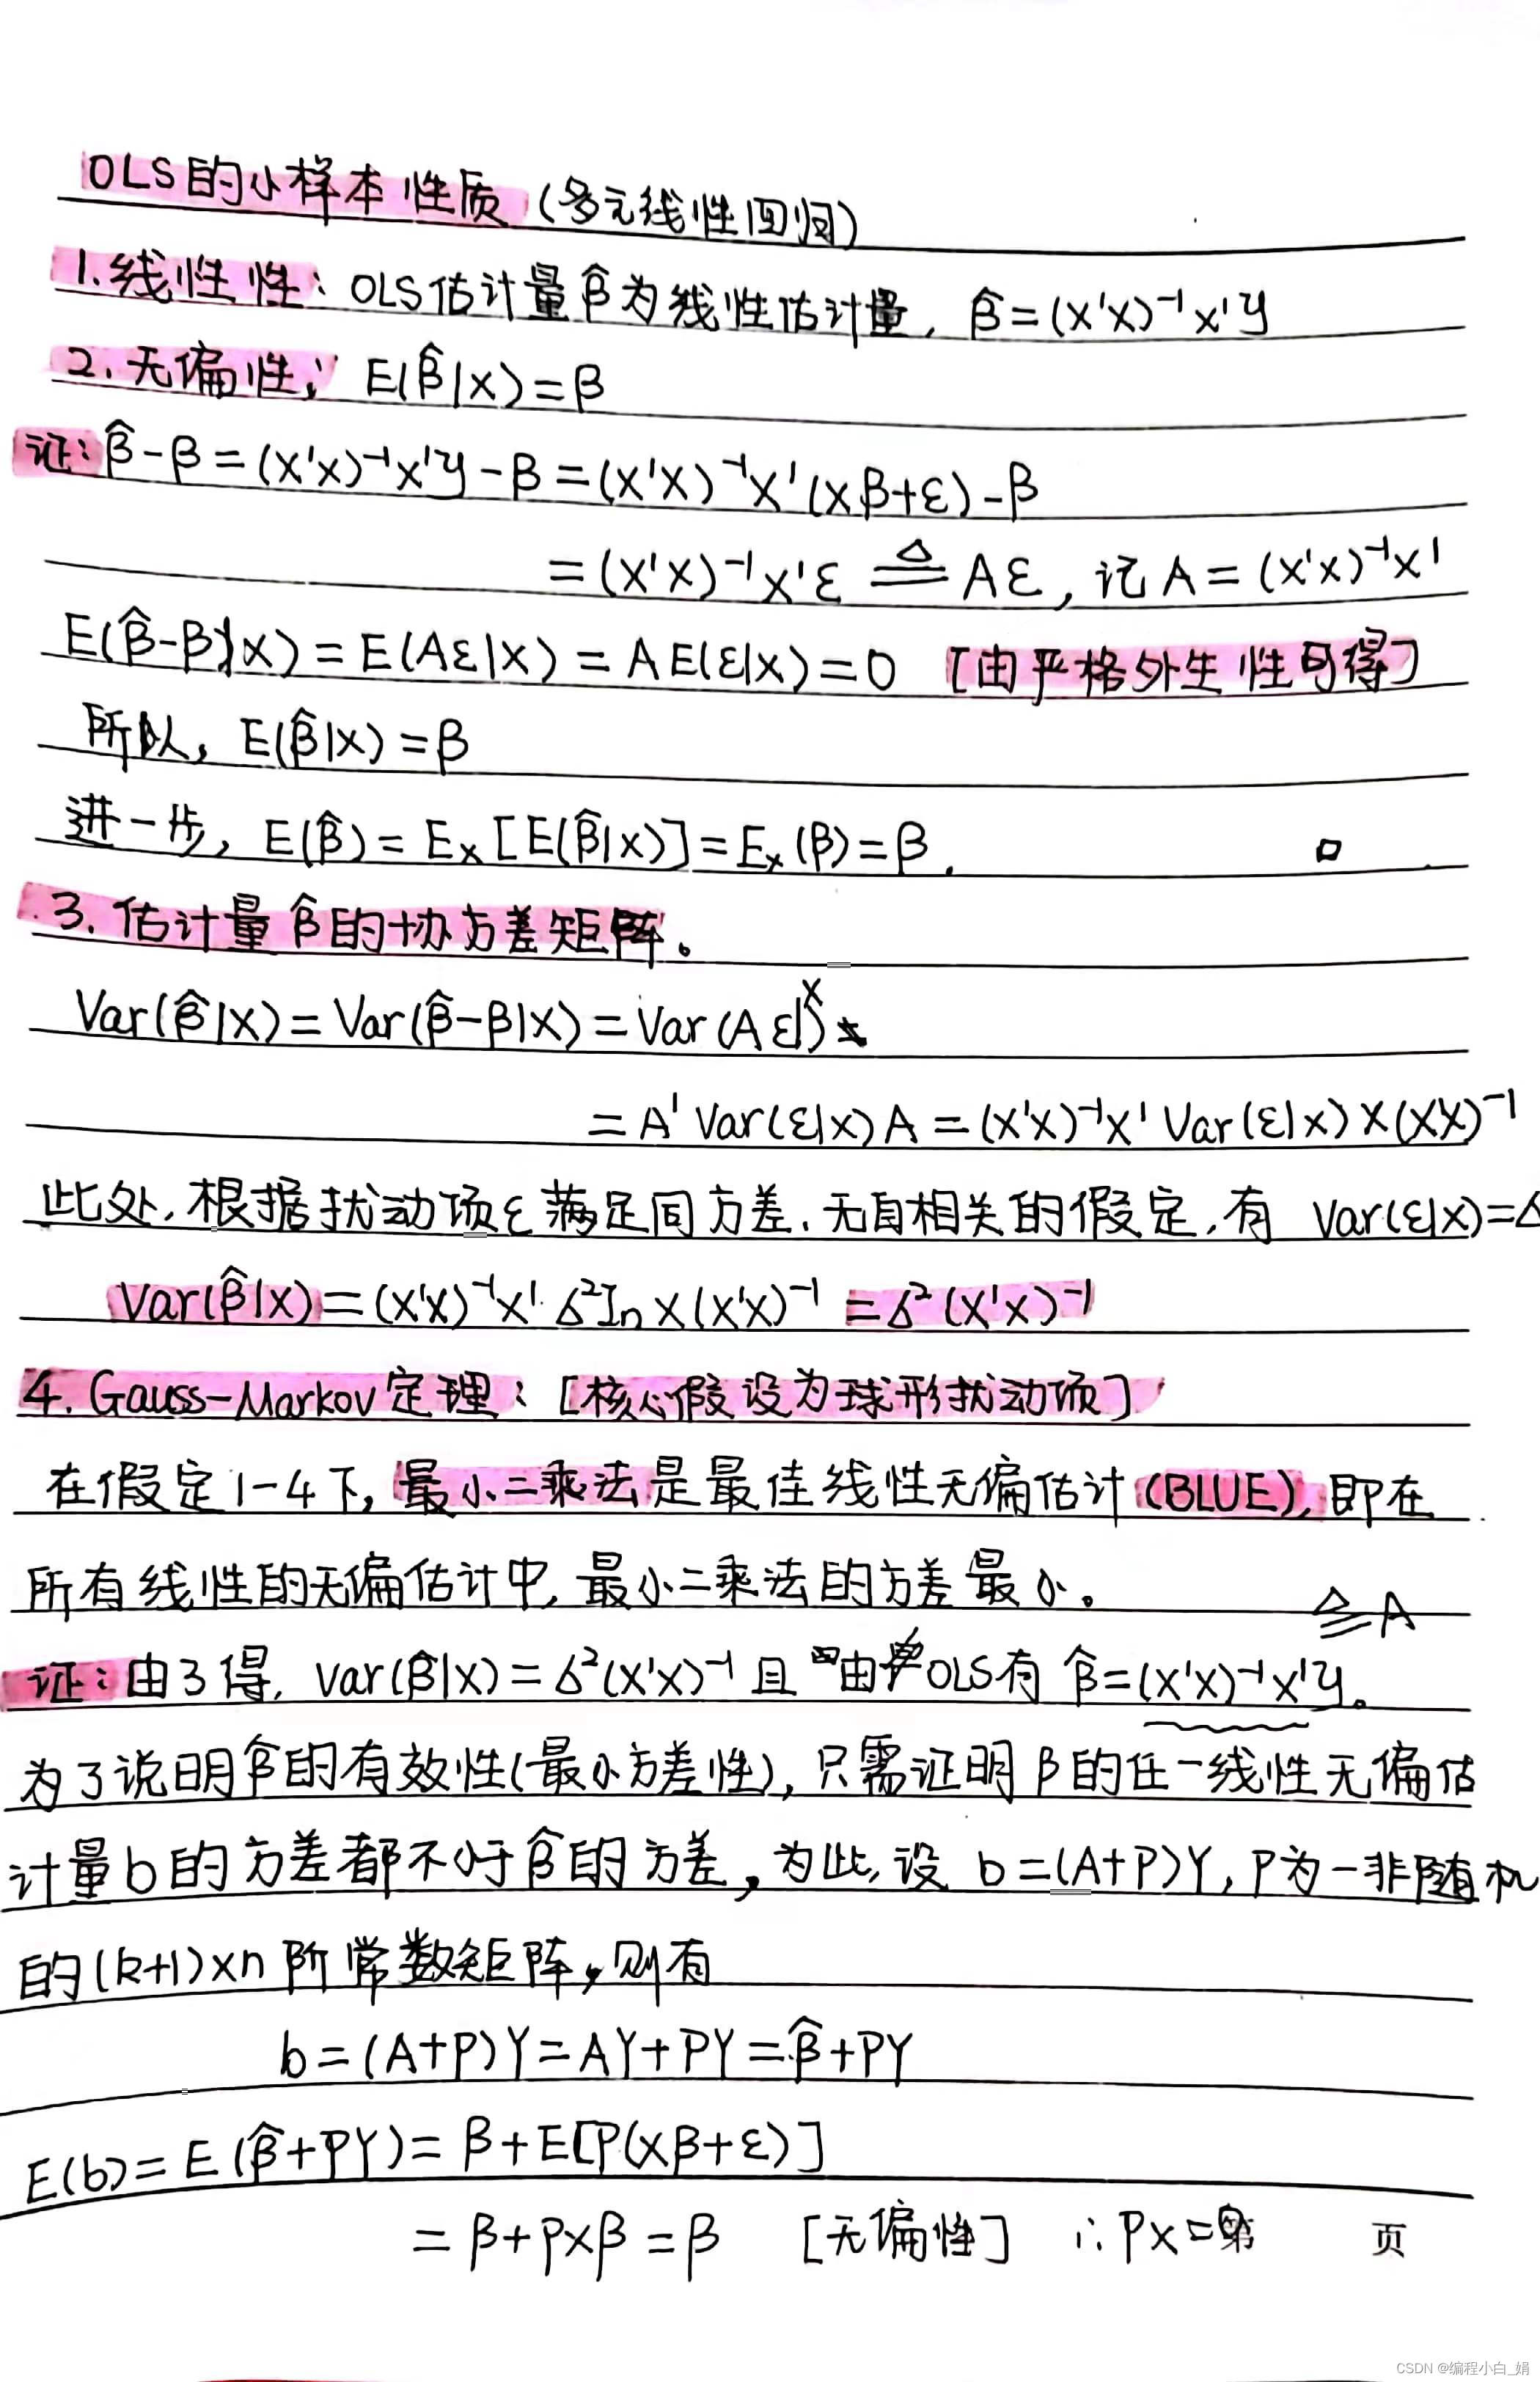 OLS的小样本性质（多元线性回归）
1.线性性：OLS估计量β̂为线性估计量，β̂=(X'X)⁻¹X'y
2.无偏性；E(β̂|X)=β
证：β̂-β=(X'X)⁻¹X'y-β=(X'X)⁻¹X'(Xβ+ε)-β
=(X'X)⁻¹X'ε ≜ Aε，记A=(X'X)⁻¹X'
E(β̂-β|X)=E(Aε|X)=AE(ε|X)=0 [由严格外生性可得]
所以，E(β̂|X)=β
进一步，E(β̂)=Eₓ[E(β̂|X)]=Eₓ(β)=β. □
3.估计量β̂的协方差矩阵。
Var(β̂|X)=Var(β̂-β|X)=Var(Aε|X)
=A'Var(ε|X)A=(X'X)⁻¹X'Var(ε|X)X(XX)⁻¹
此处，根据扰动项ε满足同方差、无自相关的假定，有 Var(ε|X)=
Var(β̂|X)=(X'X)⁻¹X'·σ²InX(X'X)⁻¹=σ²(X'X)⁻¹
4.Gauss-Markov定理：[核心假设为球形扰动项]
在假定1-4下，最小二乘法是最佳线性无偏估计(BLUE)，即在
所有线性的无偏估计中，最小二乘法的方差最小。
≜A
证：由3得，Var(β̂|X)=σ²(X'X)⁻¹且由OLS有 β̂=(X'X)⁻¹X'y。
为了说明β̂的有效性(最小方差性)，只需证明β的任一线性无偏估
计量b的方差都不小于β̂的方差，为此，设 b=(A+P)Y，P为一非随机
的(k+1)×n阶常数矩阵，则有
b=(A+P)Y=AY+PY=β̂+PY
E(b)=E(β̂+PY)=β+E[P(Xβ+ε)]
=β+PXβ=β [无偏性] ∴PX=0
第 页
CSDN @编程小白_娟